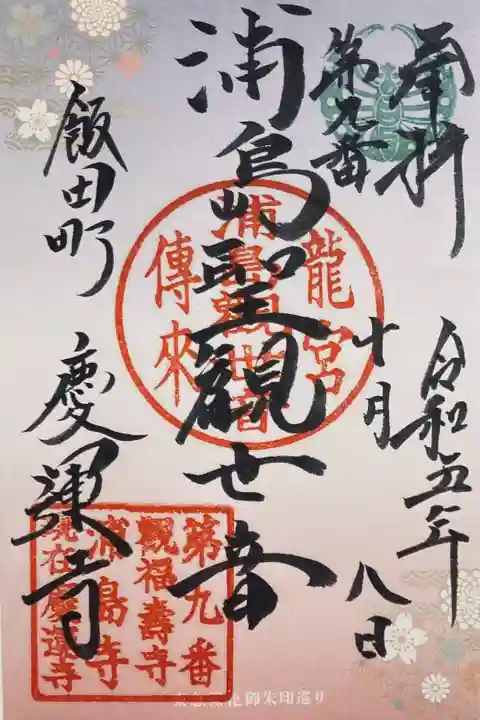 奉拝
第九番
令和五年
十月
八日
浦島聖観世音
飯田町
慶運寺
龍宮
浦島観世音
傳來
第九番
観福壽寺
浦島寺
現在慶運寺
御朱印巡り